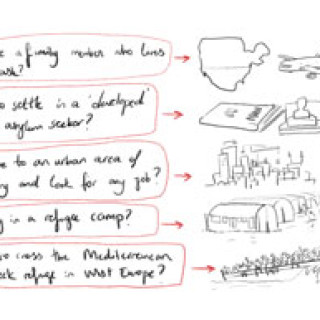 a family member who lives
to settle in a 'developed'
asylum seeker?
to an urban area of
and look for any job?
in a refugee camp?
cross the Mediterranean
refuge in West Europe?